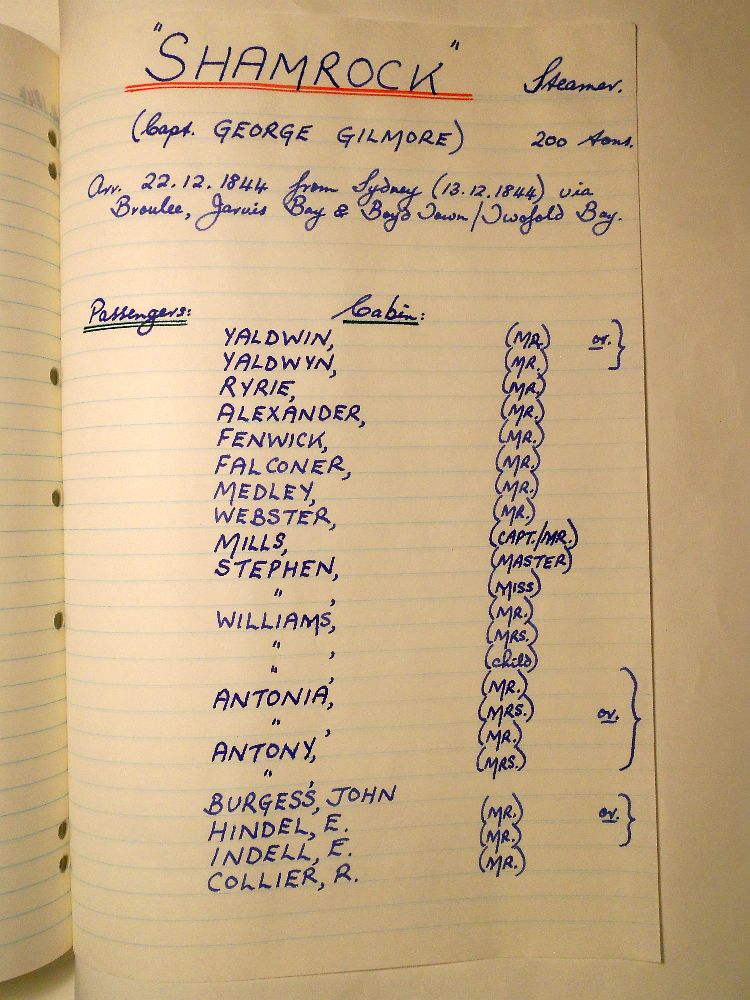 "SHAMROCK" Steamer.
(Capt. GEORGE GILMORE) 200 tons.
Arr. 22.12.1844 from Sydney (13.12.1844) via
Broulee, Jarvis Bay & Boyd Town/Twofold Bay.
Passengers: Cabin:
YALDWIN, (MR.) or.
YALDWYN, (MR.)
RYRIE, (MR.)
ALEXANDER, (MR.)
FENWICK, (MR.)
FALCONER, (MR.)
MEDLEY, (MR.)
WEBSTER, (MR.)
MILLS, (CAPT./MR.)
STEPHEN, (MASTER)
" , (MISS)
WILLIAMS, (MR.)
" , (MRS.)
" , (child)
ANTONIA, (MR.)
" , (MRS.) or.
ANTONY, (MR.)
" , (MRS.)
BURGESS, JOHN
HINDEL, E. (MR.) or.
INDELL, E. (MR.)
COLLIER, R. (MR.)